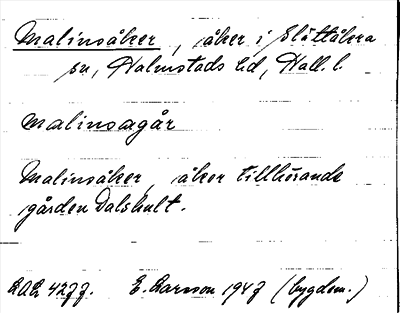 Malinsåker, åker i Slättåkra
sn, Halmstads hd, Hall. l.
malinsagår
Malinsåker, åker tillhörande
gården Dalshult.
E. Larsson 1947 (bygdem.)